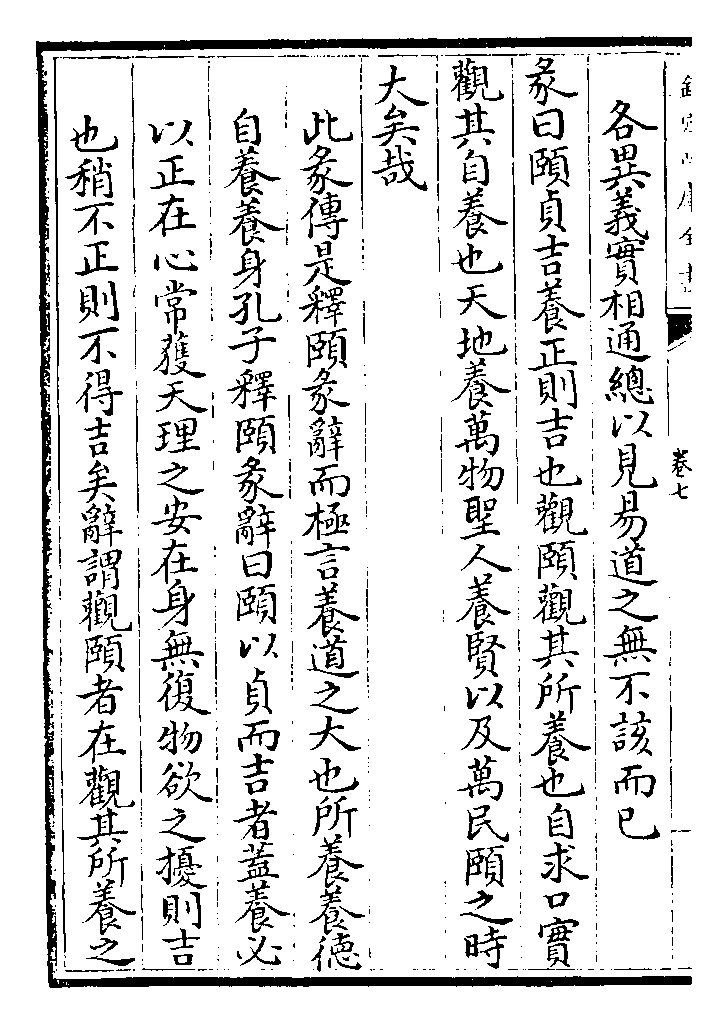 欽定四庫全書
卷七
各異義實相通總以見易道之無不該而已
彖曰頤貞吉養正則吉也觀頤觀其所養也自求口實
觀其自養也天地養萬物聖人養賢以及萬民頤之時
大矣哉
此彖傳是釋頤彖辭而極言養道之大也所養養德
自養養身孔子釋頤彖辭曰頤以貞而吉者蓋養必
以正在心常獲天理之安在身無復物欲之擾則吉
也稍不正則不得吉矣辭謂觀頤者在觀其所養之